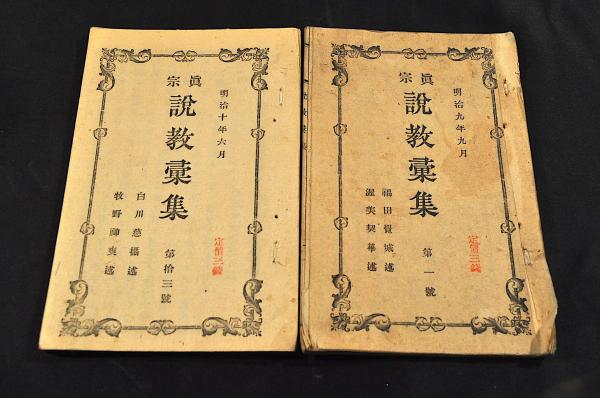 明治九年九月
眞宗
説教彙集
第一號
福田覺城述
渥美契華述
定價三錢
明治十年六月
眞宗
説教彙集
第拾三號
白川慈攝述
牧野神爽述
定價三錢